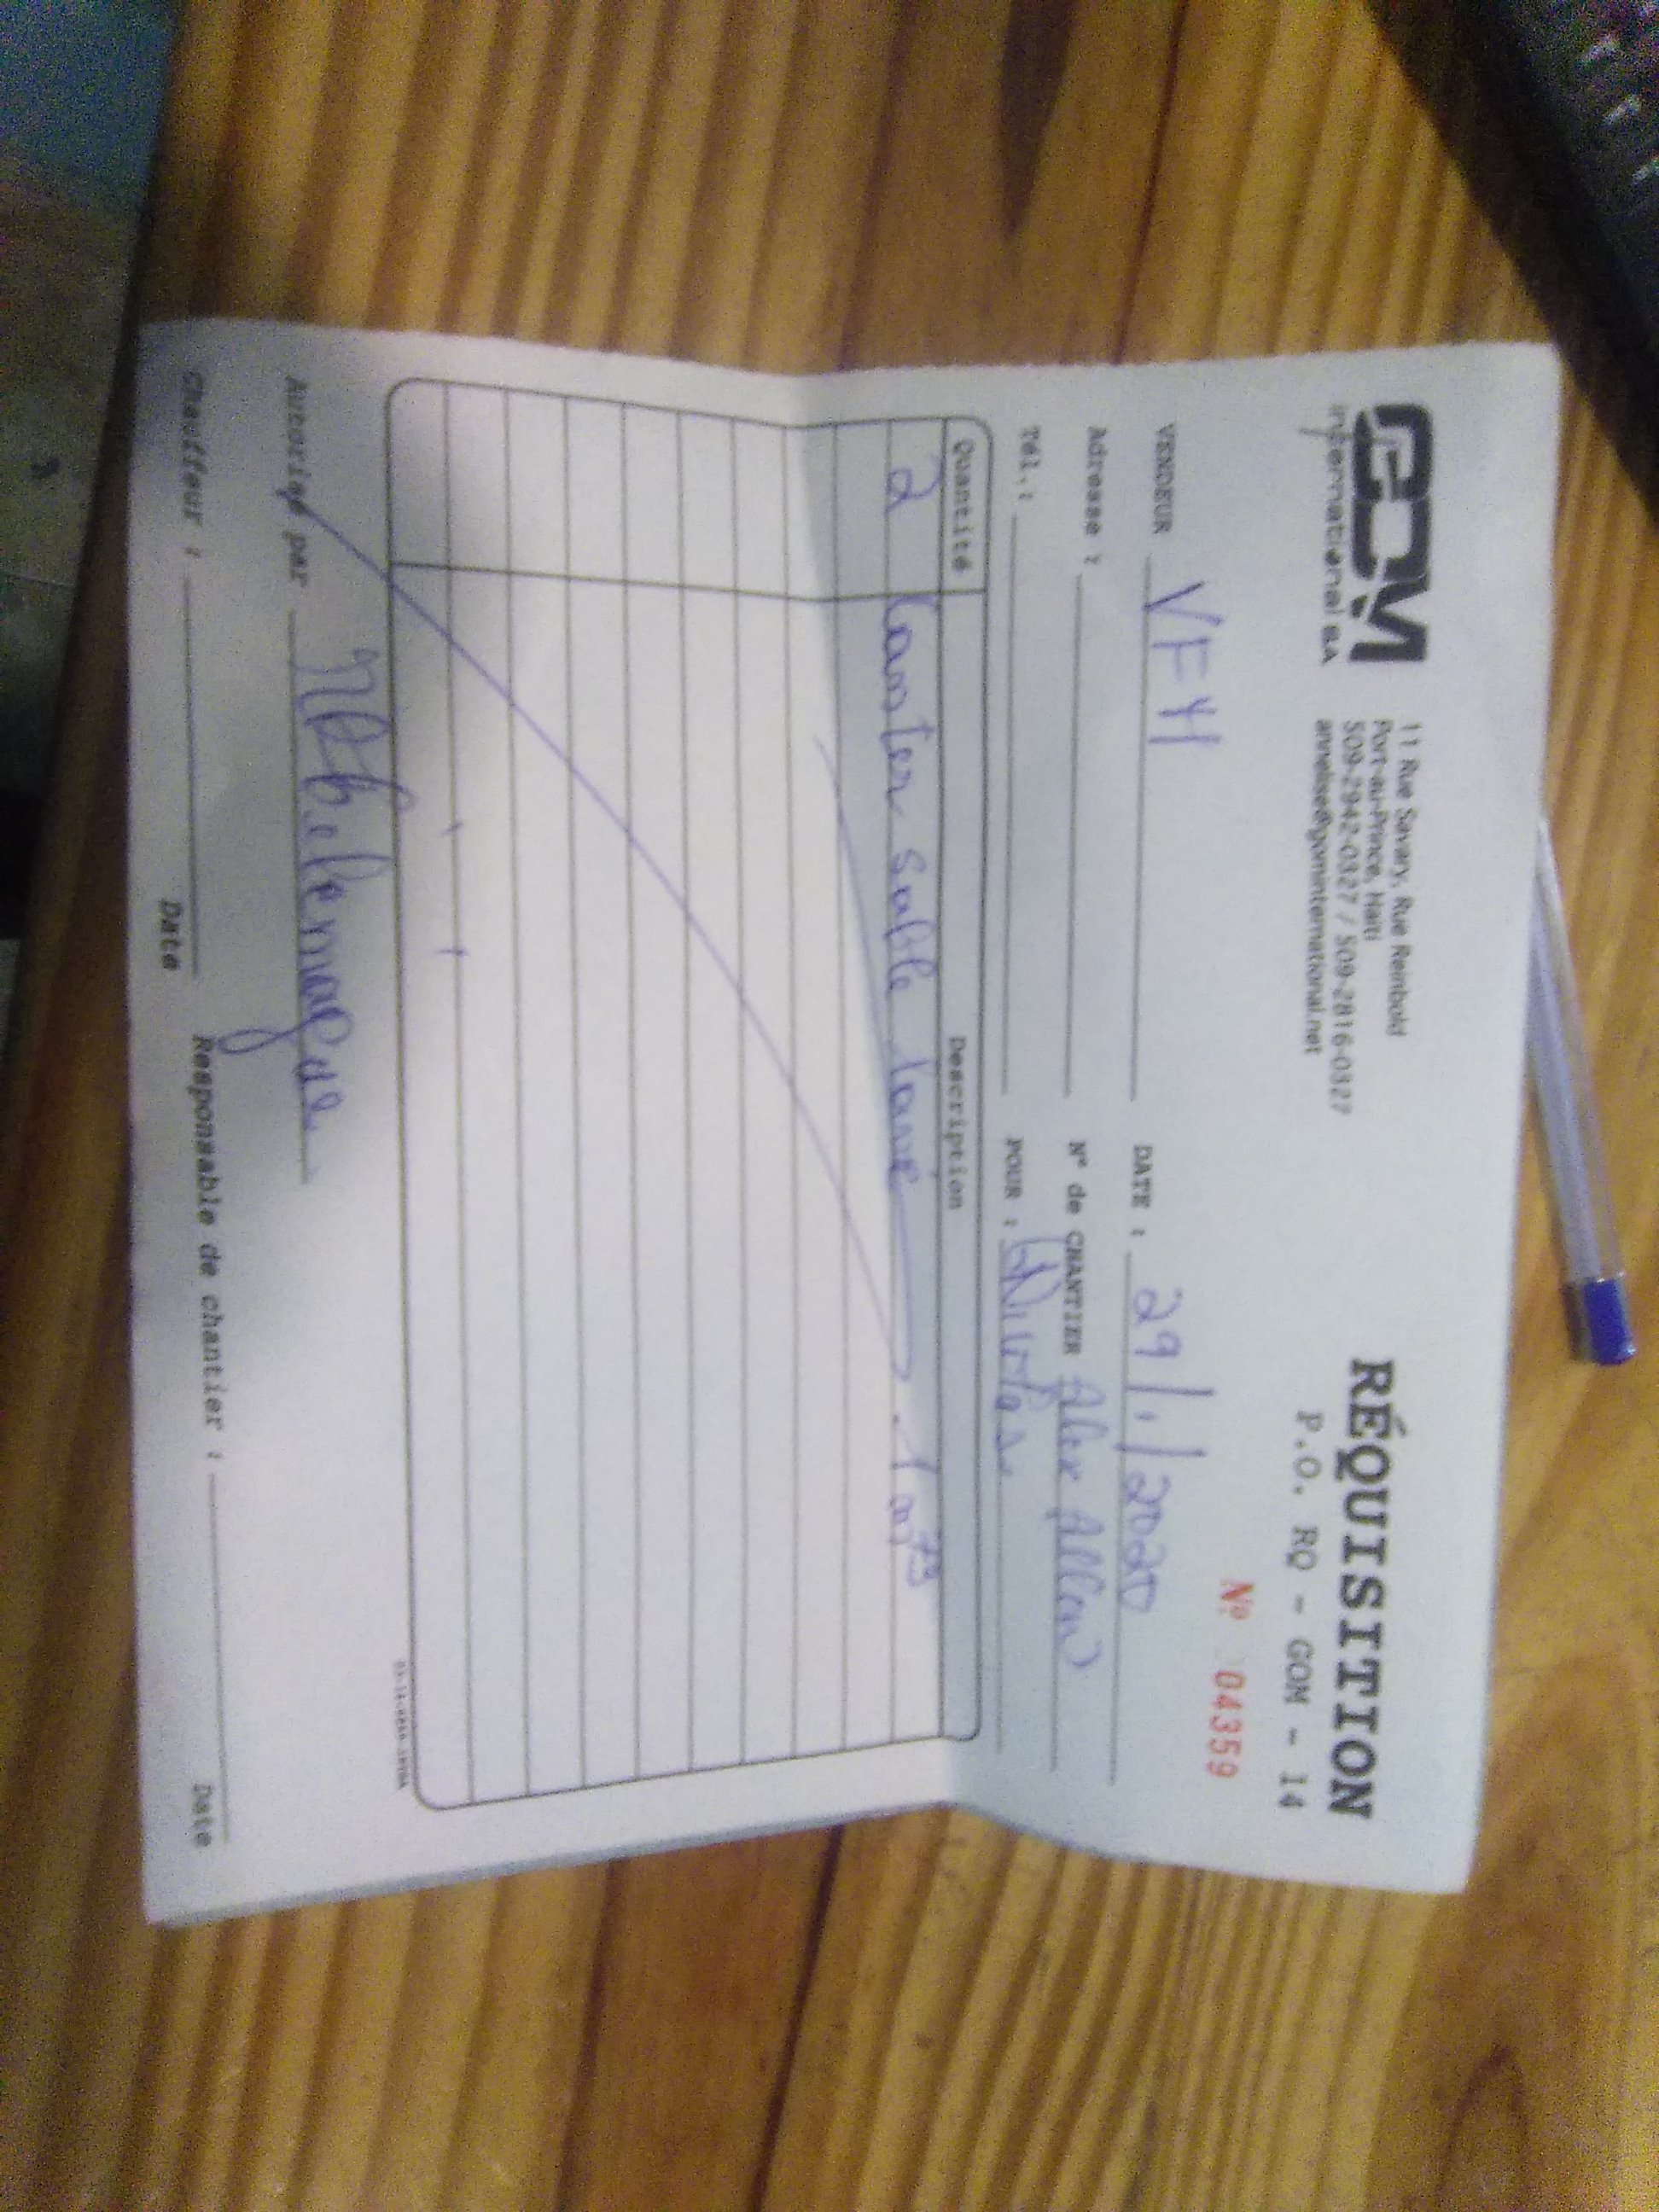 GDM
international S.A.
11 Rue Savary, Rue Reinbold
Port-au-Prince, Haïti
509-2942-0327 / 509-2816-0327
annelise@gominternational.net
RÉQUISITION
P.O. RQ - GOM - 14
Nº 04359
VENDEUR VFH
DATE : 29/1/2020
Adresse :
Nº de CHANTIER Alex Allen
Tél.:
POUR :
Quantité Description
2 sable lavé 1 m3
Autorisé par
Chauffeur : Date
Responsable de chantier : Date